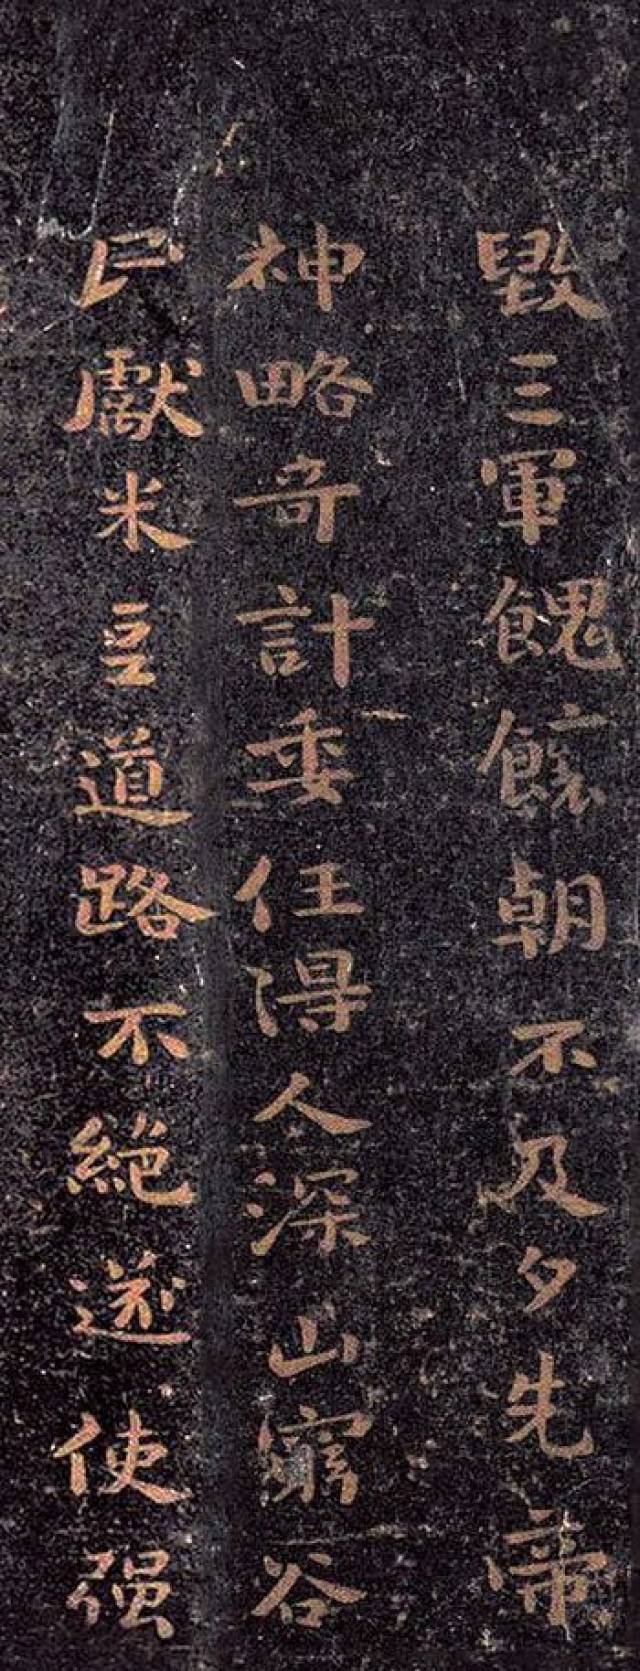 毀三軍餽饟朝不及夕先帝
神略奇計委任得人深山窮谷
民獻米豆道路不絶遂使强